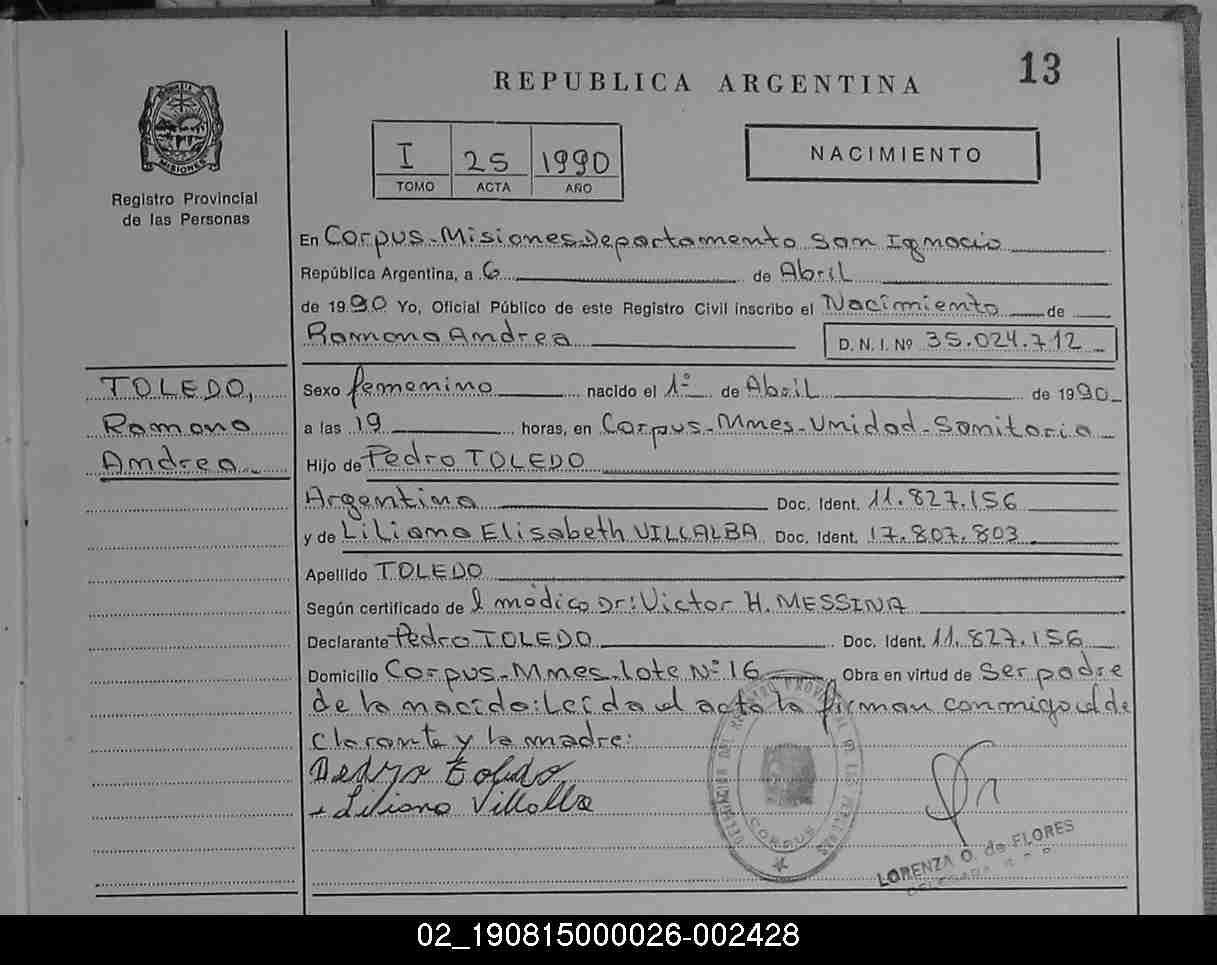 13
REPUBLICA ARGENTINA
MISIONES
Registro Provincial
de las Personas
I 25 1990
TOMO ACTA AÑO
NACIMIENTO
En Corpus-Misiones-Departamento San Ignacio
República Argentina, a 6 de Abril
de 1990 Yo, Oficial Público de este Registro Civil inscribo el Nacimiento de
Ramona Andrea D. N. I. Nº 35.024.712
TOLEDO,
Ramona
Andrea
Sexo femenino nacido el 1º de Abril de 1990
a las 19 horas, en Corpus-Mnes-Unidad-Sanitaria
Hijo de Pedro TOLEDO
Argentino Doc. Ident. 11.827.156
y de Liliana Elisabeth VILLALBA Doc. Ident. 17.807.803
Apellido TOLEDO
Según certificado de l médico Dr: Victor H. MESSINA
Declarante Pedro TOLEDO Doc. Ident. 11.827.156
Domicilio Corpus-Mnes-lote Nº 16 Obra en virtud de Ser padre
de la nacido: Leida el acta la firman conmigo el de
clarante y la madre:
Pedro Toledo
Liliana Villalba
DELEGACION DEL REGISTRO PROVINCIAL DE LAS PERSONAS
CORPUS
LORENZA O. de FLORES
02_190815000026-002428